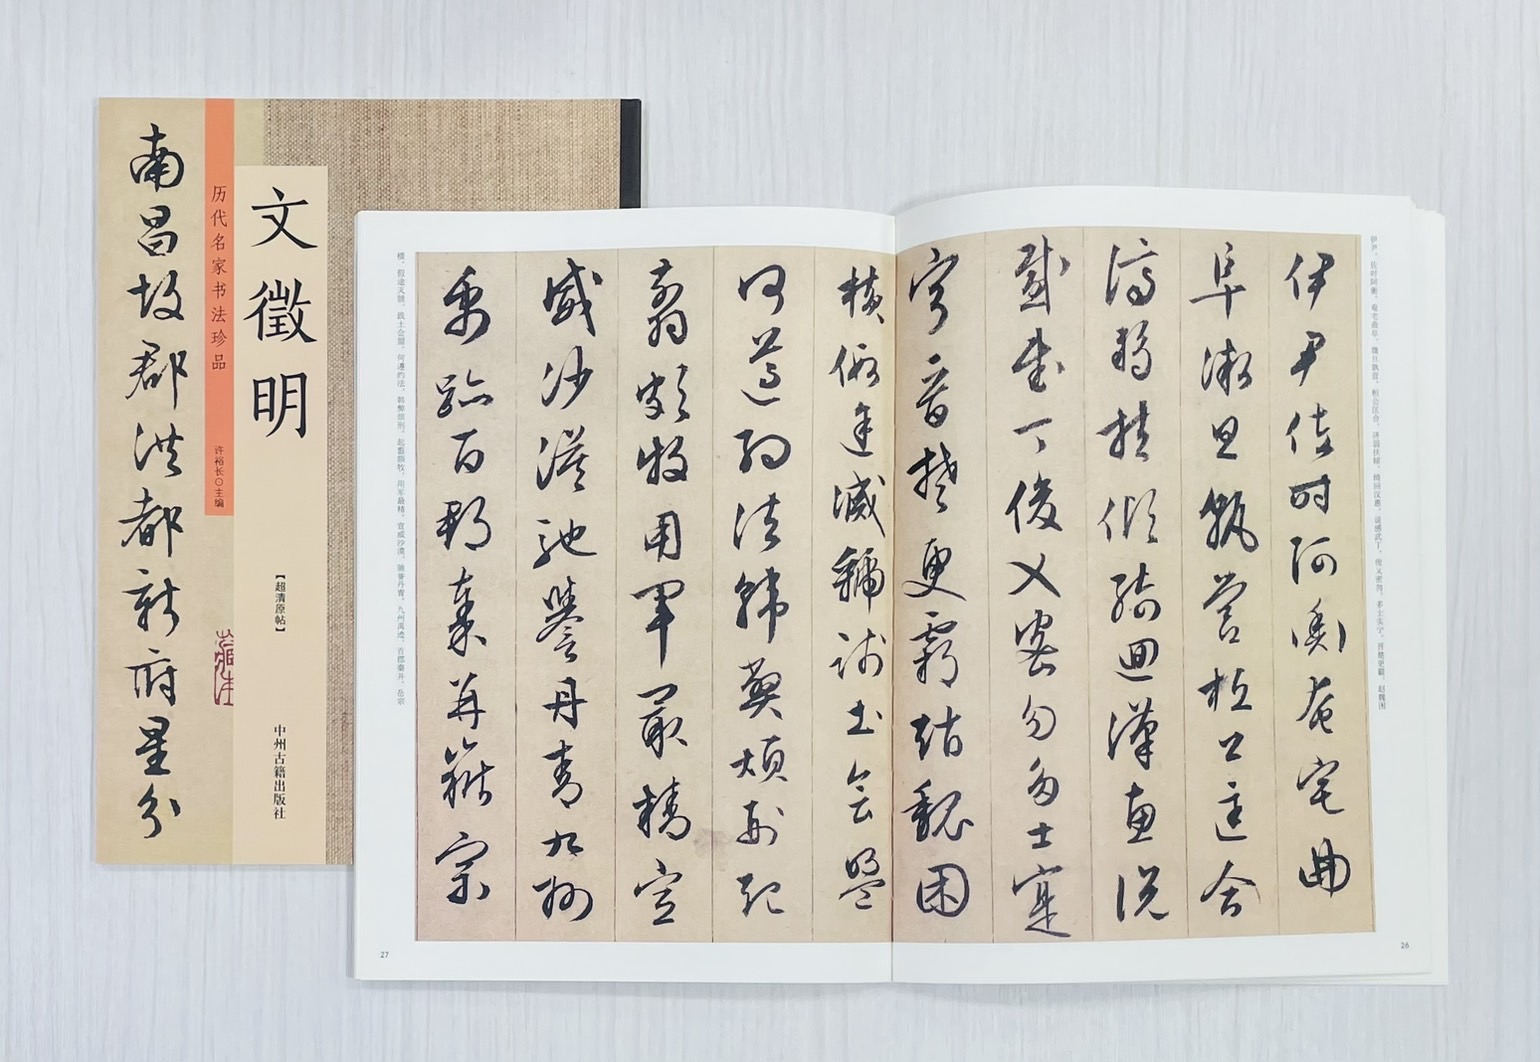 南昌故郡洪都新府星分
历代名家书法珍品
许裕长○主编
文徵明
【超清原帖】
中州古籍出版社
伊尹,佐时阿衡。奄宅曲阜,微旦孰营。桓公匡合,济弱扶倾。绮回汉惠,说感武丁。俊乂密勿,多士实宁。晋楚更霸,赵魏困
伊尹佐时阿衡奄宅曲
阜微旦孰營桓公匡合
濟弱扶傾綺迴漢惠說
感武丁俊乂密勿多士寔
寧晉楚更霸趙魏困
橫假途滅虢踐土會盟
何遵約法韓弊煩刑起
翦頗牧用軍最精宣
威沙漠馳譽丹青九州
禹跡百郡秦并嶽宗
横。假途灭虢,践土会盟。何遵约法,韩弊烦刑。起翦颇牧,用军最精。宣威沙漠,驰誉丹青。九州禹迹,百郡秦并。岳宗
26
27